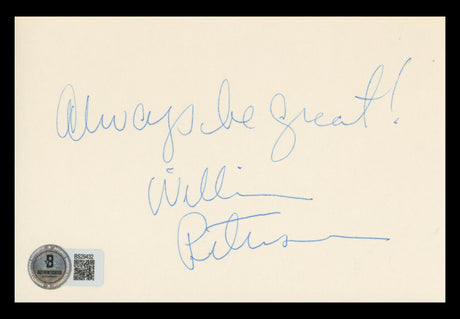 Always be great!
William
Petersen
BS29432
B
AUTHENTICATED